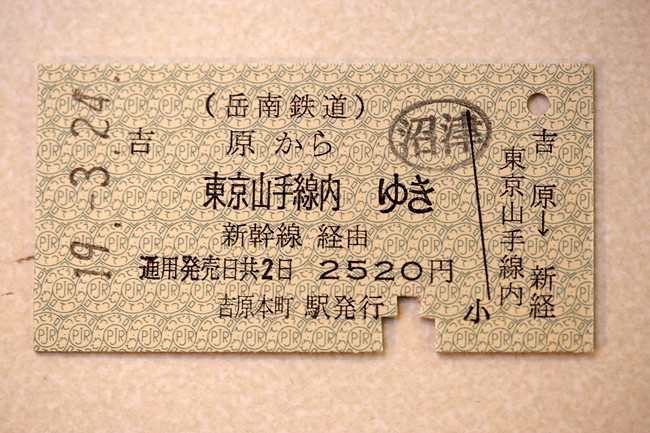 19.-3.24.
(岳南鉄道)
吉原から
東京山手線内 ゆき
新幹線 経由
通用発売日共2日 2520円
吉原本町 駅発行
沼津
小
吉原→東京山手線内
新経
PJR